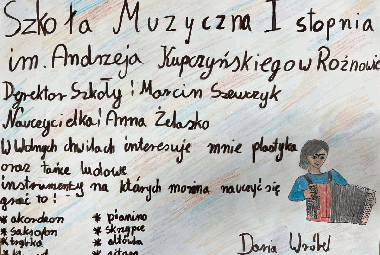 Szkoła Muzyczna I stopnia
im. Andrzeja Kupczyńskiego w Rożnowie
Dyrektor Szkoły! Marcin Szewczyk
Nauczycielka! Anna Żelasko
W wolnych chwilach interesuje mnie plastyka
oraz tańce ludowe
instrumenty na których można nauczyć się
grać to! -
* akordeon
* saksofon
* trąbka
* pianino
* skrzypce
* altówka
* gitara
Daria Wróbel